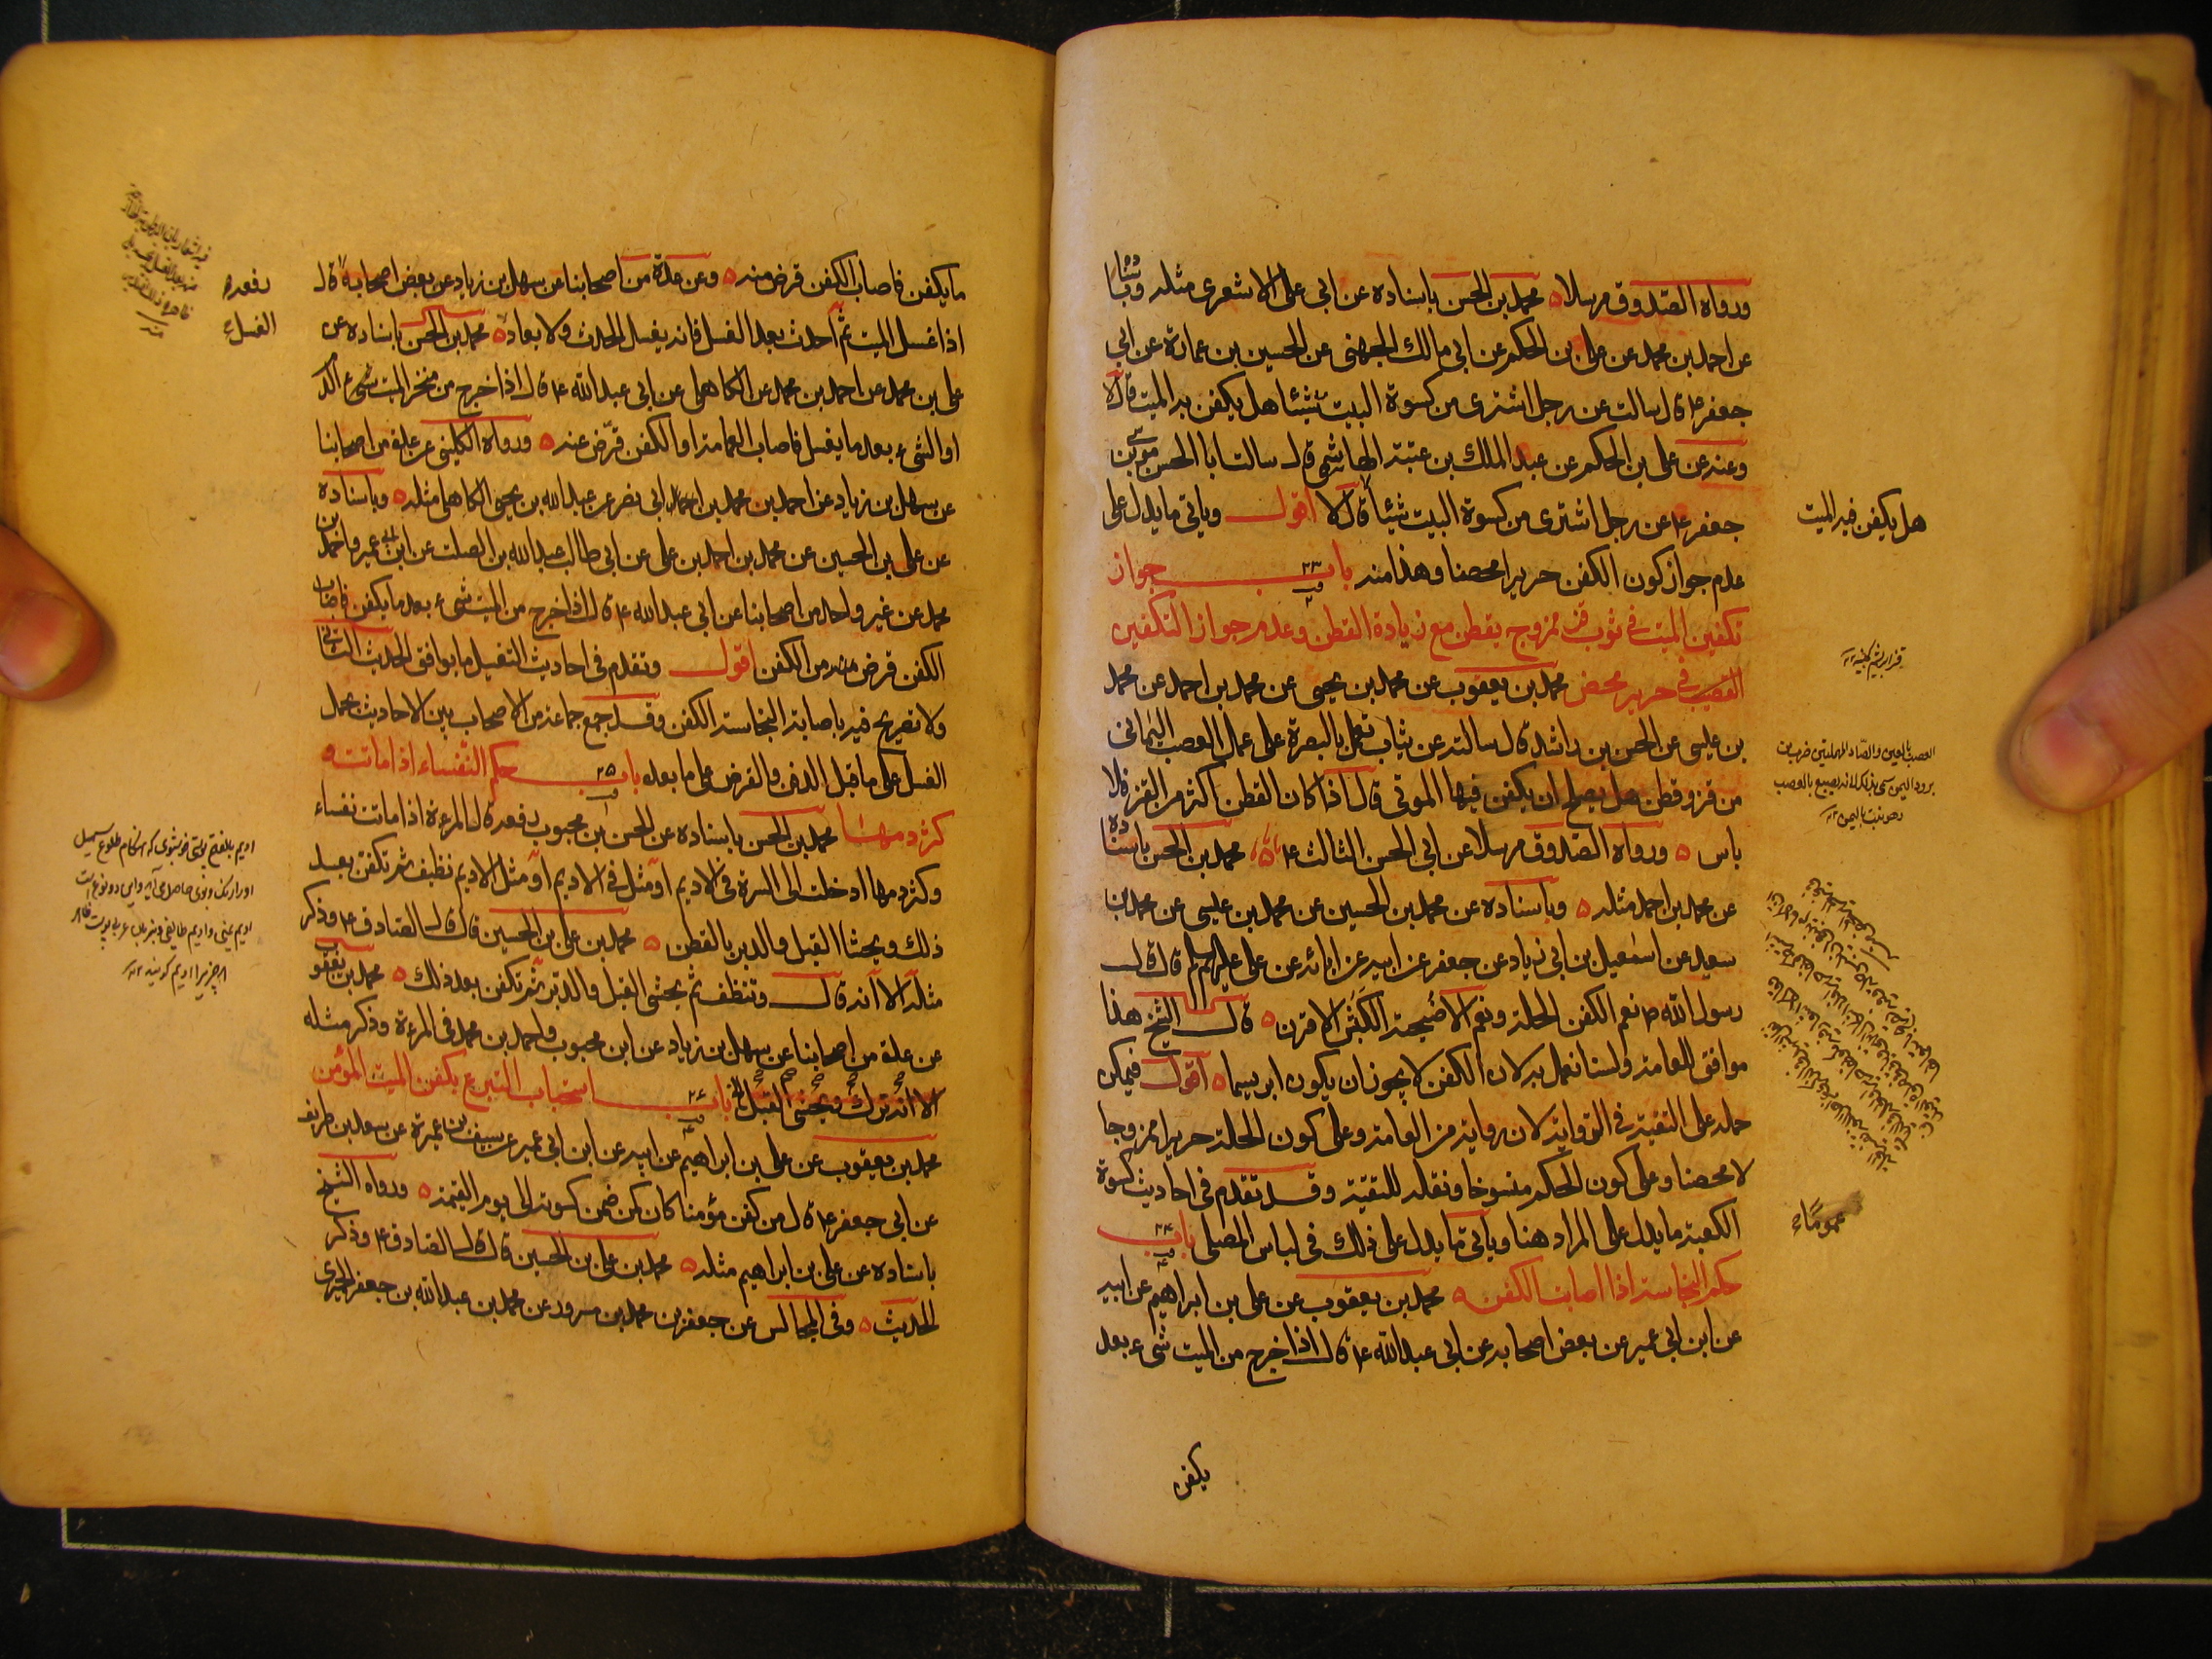 ورواه الصدوق مرسلا محمد بن الحسن باسناده عن ابي علي الاشعري مثله وباسناده
عن احمد بن محمد عن علي بن الحكم عن ابي مالك الجهني عن الحسين بن عمارة عن ابي
جعفر ع قال سالته عن رجل اشترى من كسوة البيت شيئا هل يكفن به الميت قال لا
وعنه عن علي بن الحكم عن عبد الملك بن عتبة الهاشمي قال سالت ابا الحسن موسى بن
جعفر ع عن رجل اشترى من كسوة البيت شيئا قال لا اقول وياتي ما يدل على
عدم جواز كون الكفن حريرا محضا وهذا منه باب ٢٣ جواز
تكفين الميت في ثوب قز ممزوج بقطن مع زيادة القطن وعدم جواز التكفين
في حرير محض محمد بن يعقوب عن محمد بن يحيى عن محمد بن احمد عن محمد
بن عيسى عن الحسن بن راشد قال سالته عن ثياب تعمل بالبصرة على عمل العصب اليماني
من قز وقطن هل يصلح ان يكفن فيها الموتى قال اذا كان القطن اكثر من القز فلا
باس ورواه الصدوق مرسلا عن ابي الحسن الثالث ع محمد بن الحسن باسناده
عن محمد بن احمد مثله وباسناده عن محمد بن الحسين عن محمد بن عيسى عن محمد بن
سعيد عن اسمعيل بن ابي زياد عن جعفر عن ابيه عن ابائه عن علي عليهم السلم قال قال
رسول الله ص نعم الكفن الحلة ونعم الاضحية الكبش الاقرن قال الشيخ هذا
موافق للعامة ولسنا نعمل به لان الكفن لا يجوز ان يكون ابريسما اقول فيمكن
حمله على التقية في الرواية لان رواية من العامة وعلى كون الحلة حريرا ممزوجا
لا محضا وعلى كون الحكم منسوخا ونقله للتقية وقد تقدم في احاديث كسوة
الكعبة ما يدل على المراد هنا وياتي ما يدل على ذلك في لباس المصلي باب ٢٤
حكم النجاسة اذا اصابت الكفن محمد بن يعقوب عن علي بن ابراهيم عن ابيه
عن ابن ابي عمير عن بعض اصحابه عن ابي عبد الله ع قال اذا خرج من الميت شيء بعد
يكفن
هل يكفن فيه الميت
العصب بالعين والصاد المهملتين ضرب من
برود اليمن سمي بذلك لانه يصبغ بالعصب
وهو نبت باليمن
عموما
ما يكفن فاصاب الكفن قرض منه وعن عدة من اصحابنا عن سهل بن زياد عن بعض اصحابه قال
اذا غسل الميت ثم احدث بعد الغسل فانه يغسل الحدث ولا يعاد محمد بن الحسن باسناده عن
علي بن محمد عن احمد بن محمد عن الكاهلي عن ابي عبد الله ع قال اذا خرج من منخر الميت شيء الدم
او الشيء بعد ما يغسل فاصاب العمامة او الكفن قرض عنه ورواه الكليني عن عدة من اصحابنا
عن سهل بن زياد عن احمد بن محمد بن ابي نصر عن عبد الله بن يحيى الكاهلي مثله وباسناده
عن علي بن الحسين عن محمد بن احمد بن علي عن ابي طالب عبد الله بن الصلت عن ابن ابي عمير واحمد بن
محمد عن غير واحد من اصحابنا عن ابي عبد الله ع قال اذا خرج من الميت شيء بعد ما يكفن فاصاب
الكفن قرض منه من الكفن اقول وتقدم في احاديث التغسيل ما يوافق الحديث الثاني
ولا تصريح فيه باصابة النجاسة الكفن وقد جمع جماعة من الاصحاب بين الاحاديث بحمل
الغسل على ما قبل الدفن والقرض على ما بعده باب ٢٥ حكم النفساء اذا ماتت و
كثر دمها محمد بن الحسن باسناده عن الحسن بن محبوب رفعه قال المرءة اذا ماتت نفساء
وكثر دمها ادخلت الى السرة في الاديم او مثل في الاديم او مثل الاديم نظيف ثم تكفن بعد
ذلك ويحشا القبل والدبر بالقطن محمد بن علي بن الحسين قال قال الصادق ع وذكر
مثله الا انه قال وتنظف ثم يحشى القبل والدبر ثم تكفن بعد ذلك محمد بن يعقوب
عن عدة من اصحابنا عن سهل بن زياد عن ابن محبوب واحمد بن محمد في المرءة وذكر مثله
الا انه ترك ويحشى القبل باب ٢٦ استحباب التبرع بكفن الميت المؤمن
محمد بن يعقوب عن علي بن ابراهيم عن ابيه عن ابن ابي عمير عن سيف بن عميرة عن سعد بن طريف
عن ابي جعفر ع قال من كفن مؤمنا كان كمن ضمن كسوته الى يوم القيمة ورواه الشيخ
باسناده عن علي بن ابراهيم مثله محمد بن علي بن الحسين قال قال الصادق ع وذكر
الحديث وفي المجالس عن جعفر بن محمد بن مسرور عن محمد بن عبد الله بن جعفر الحميري
رفعه
الغسل